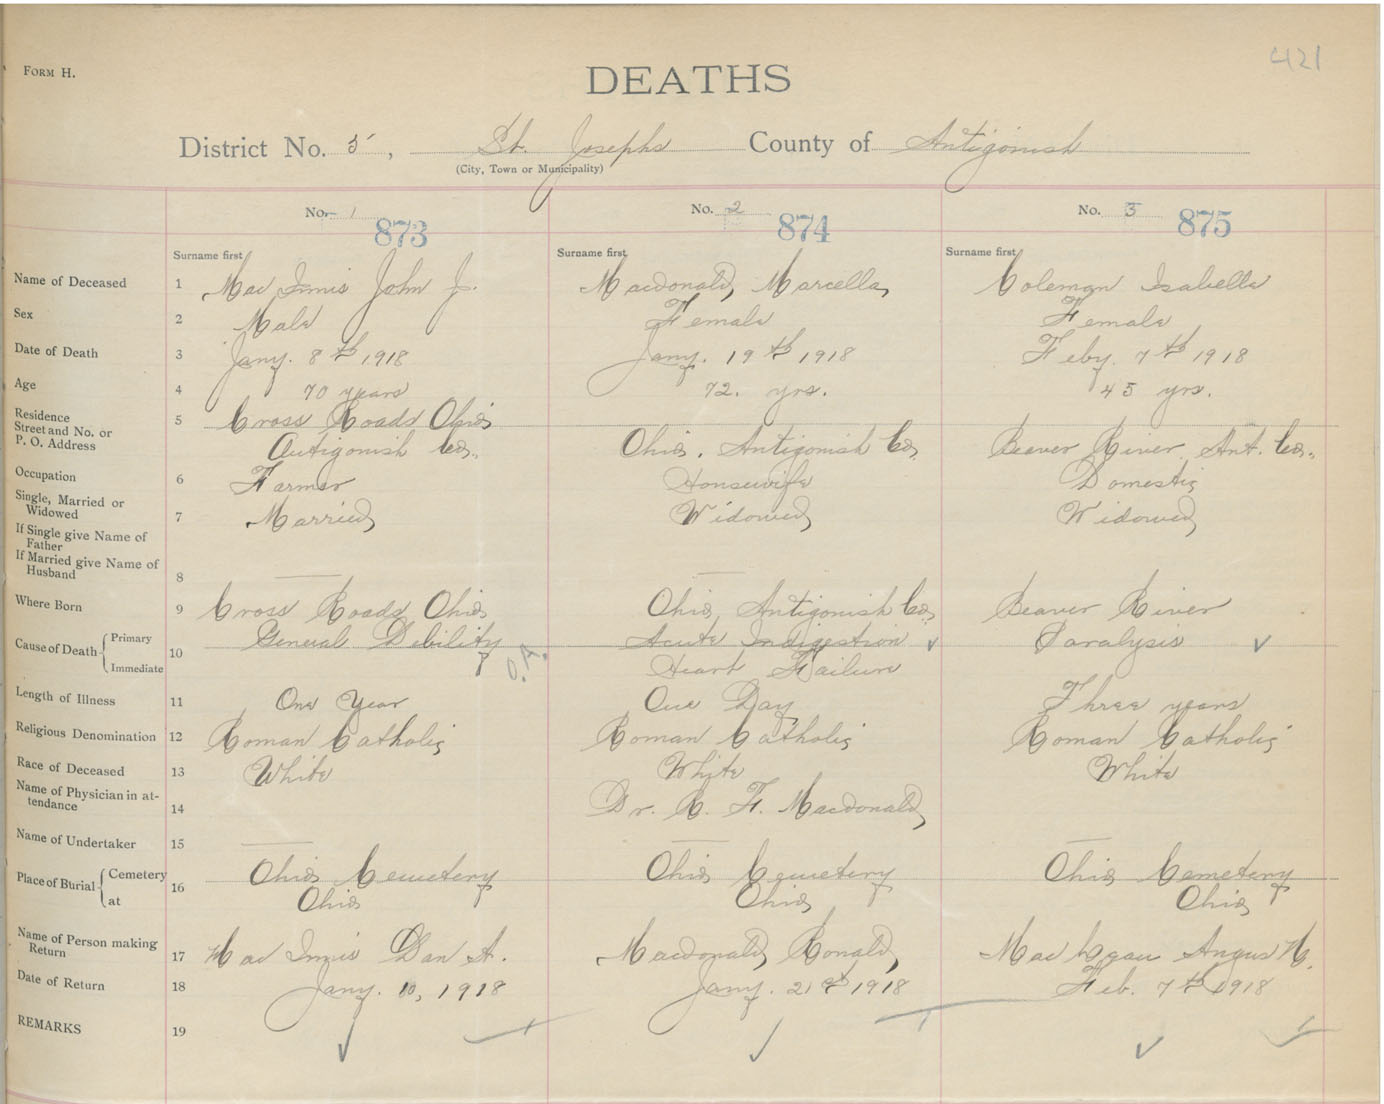 421
FORM H.
DEATHS
District No. 5, St. Josephs County of Antigonish
(City, Town or Municipality)
No. 1 873 No. 2 874 No. 3 875
Surname first Surname first Surname first
Name of Deceased 1 Mac Innis John J. Macdonald, Marcella Coleman Isabella
Sex 2 Male Female Female
Date of Death 3 Jany. 8th 1918 Jany. 19th 1918 Feby. 7th 1918
Age 4 70 years 72. yrs. 45 yrs.
Residence Street and No. or P. O. Address 5 Cross Roads Ohio Antigonish Co. Ohio. Antigonish Co. Beaver River Ant. Co.
Occupation 6 Farmer Housewife Domestic
Single, Married or Widowed 7 Married Widowed Widowed
If Single give Name of Father
If Married give Name of Husband 8
Where Born 9 Cross Roads Ohio Ohio, Antigonish Co. Beaver River
Cause of Death Primary 10 General Debility O.A. Acute Indigestion Paralysis
Immediate Heart Failure
Length of Illness 11 One Year One Day Three years
Religious Denomination 12 Roman Catholic Roman Catholic Roman Catholic
Race of Deceased 13 White White White
Name of Physician in attendance 14 Dr. R. F. Macdonald
Name of Undertaker 15
Place of Burial Cemetery 16 Ohio Cemetery Ohio Cemetery Ohio Cemetery
at Ohio Ohio Ohio
Name of Person making Return 17 Mac Innis Dan A. Macdonald, Ronald Angus
Date of Return 18 Jany. 10, 1918 Jany. 21st 1918 Feb. 7th 1918
REMARKS 19